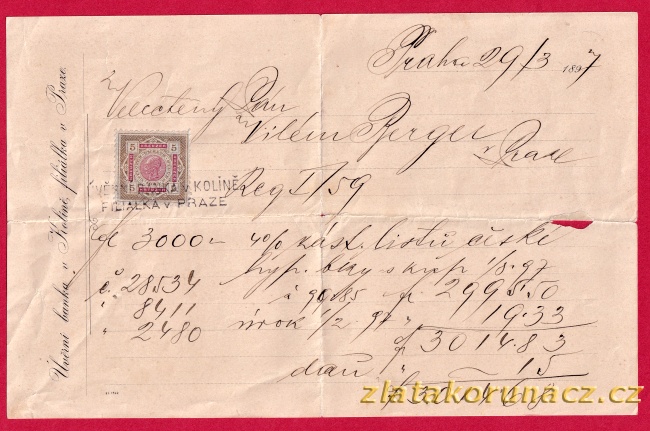 Úvěrní banka v Kolíně, filiálka v Praze.
Praha 29/3 1897
Velectěný Pán
Vilém Berger
v Praze
5 5
5 5
ÚVĚRNÍ BANKA V KOLÍNĚ
FILIÁLKA V PRAZE
Reg I/59
3000 4% zást. listů české
hyp. bky s kup 1/8. 97
č. 28534 à 99.85 fl 2995.50
" 8411 úrok 1/2 97 " 19.33
" 2480
fl 3014.83
" 15
zlatakorunacz.cz